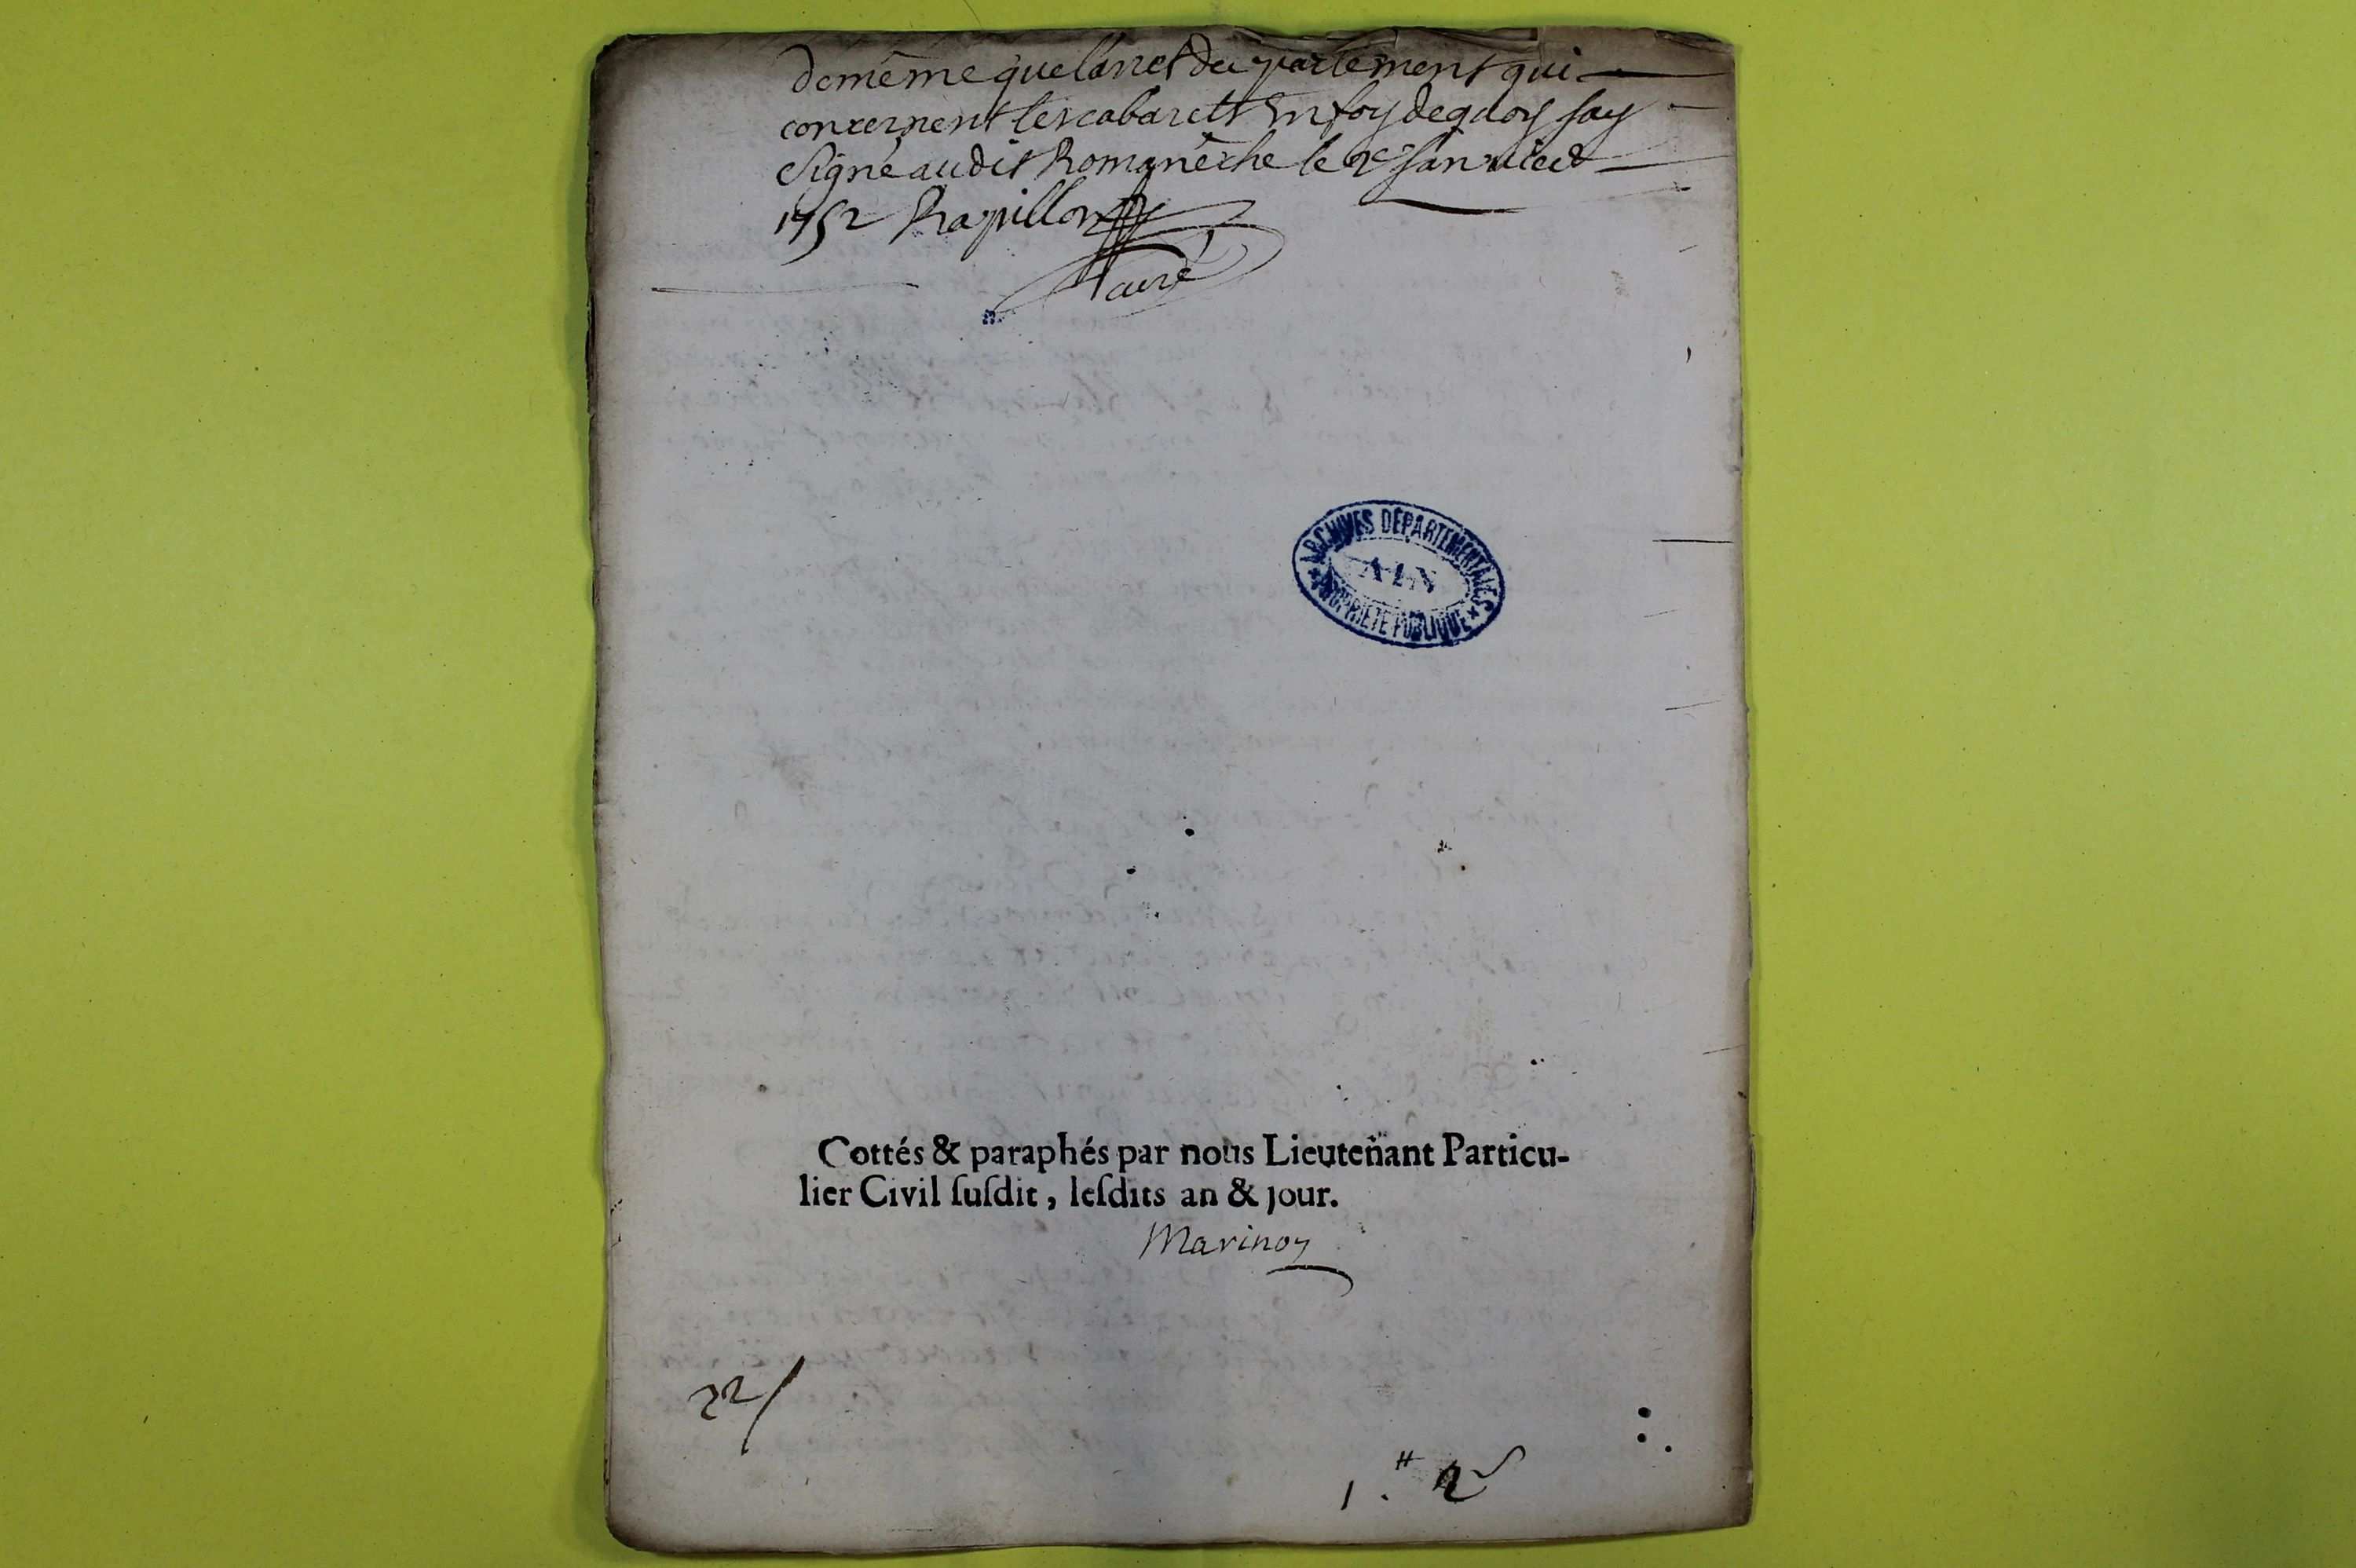 de même que larret du parlement qui
concernent les cabarets En foy de quoy jay
signé audit Romanêche le 2e janvier
1752 Rapillon
curé
ARCHIVES DÉPARTEMENTALES
AIN
PROPRIÉTÉ PUBLIQUE
Cottés & paraphés par nous Lieuteñant Particu-
lier Civil ſuſdit, leſdits an & jour.
Marinon
22/
1.# 2ſ